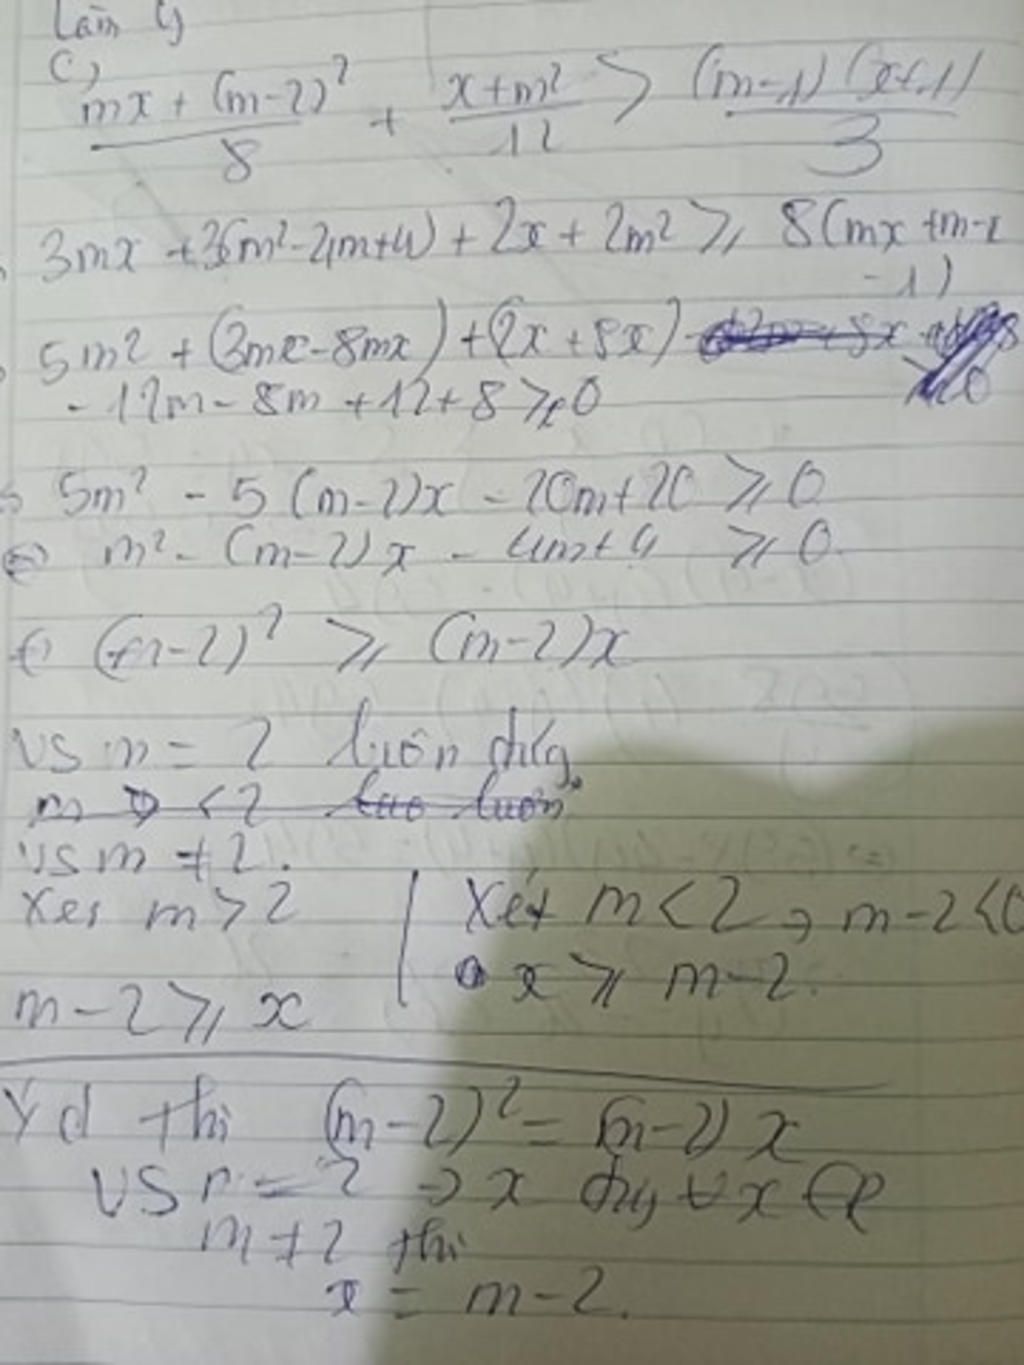 Làm
c)
mx + (m-2)² / 8 + x+m² / 12 > (m-1)(x+1) / 3
3mx + 3(m²-4m+4) + 2x + 2m² ⩾ 8(mx+m-x
-1)
5m² + (3mx-8mx) + (2x+8x)
-12m-8m+12+8 ⩾ 0
5m² - 5(m-2)x - 20m+20 ⩾ 0
m² - (m-2)x - 4m+4 ⩾ 0
(m-2)² ⩾ (m-2)x
vs m = 2 luôn đúng.
m < 2 luôn
vs m ≠ 2.
Xét m > 2
m-2 ⩾ x
Xét m < 2 → m-2 < 0
x ⩾ m-2.
Ý d thì (m-2)² = (m-2)x
vs m = 2 → x đúng ∀x ∈ R
m ≠ 2 thì
x = m-2.